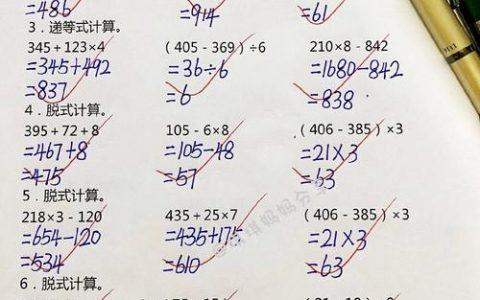 =486 =914 =61
3．递等式计算。
345+123×4 （405-369）÷6 210×8-842
=345+492 =36÷6 =1680-842
=837 =6 =838
4．脱式计算。
395+72+8 105-6×8 （406-385）×3
=467+8 =105-48 =21×3
=475 =57 =63
5．脱式计算。
218×3-120 435+25×7 （406-385）×3
=654-120 =435+175 =21×3
=534 =610 =63
6．脱式计算。